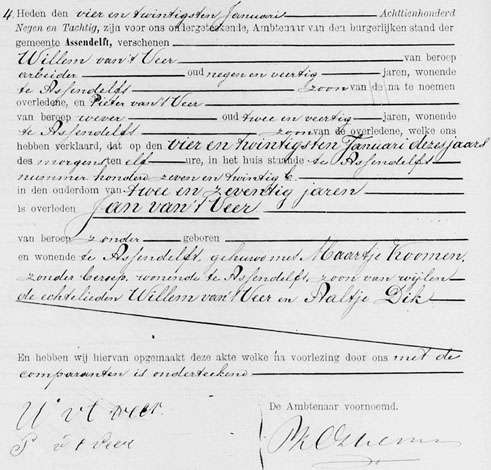 4. Heden den vier en twintigsten Januari Achttienhonderd
Negen en Tachtig, zijn voor ons ondergeteekende, Ambtenaar van den burgerlijken stand der
gemeente Assendelft, verschenen
Willem van 't Veer van beroep
arbeider oud negen en veertig jaren, wonende
te Assendelft zoon van de na te noemen
overledene, en Pieter van 't Veer
van beroep wever oud twee en veertig jaren, wonende
te Assendelft zoon van de overledene, welke ons
hebben verklaard, dat op den vier en twintigsten Januari dezes jaars
des morgens ten elf ure, in het huis staande te Assendelft
nummer honderd zeven en twintig b.
in den ouderdom van twee en zeventig jaren
is overleden Jan van 't Veer
van beroep zonder geboren
en wonende te Assendelft, gehuwd met Maartje Koomen,
zonder beroep, wonende te Assendelft, zoon van wijlen
de echtelieden Willem van 't Veer en Aaltje Dik
En hebben wij hiervan opgemaakt deze akte welke na voorlezing door ons met de
comparanten is onderteekend
W v t veer
P v t Veer
De Ambtenaar voornoemd.